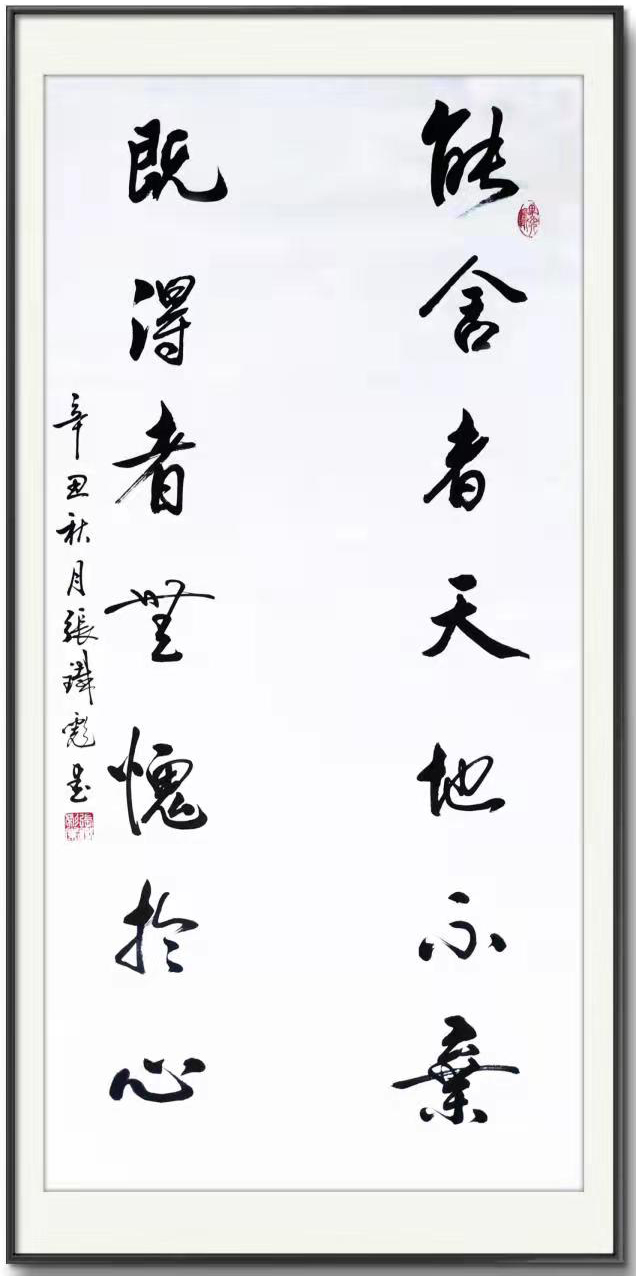 能舍者天地不棄
既得者無愧於心
辛丑秋月張瑋彪書